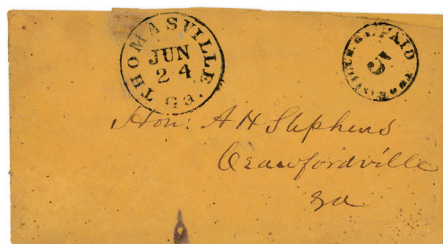 THOMASVILLE
JUN
24
Ga.
PAID
5
Hon. A H Stephens
Crawfordville
Ga